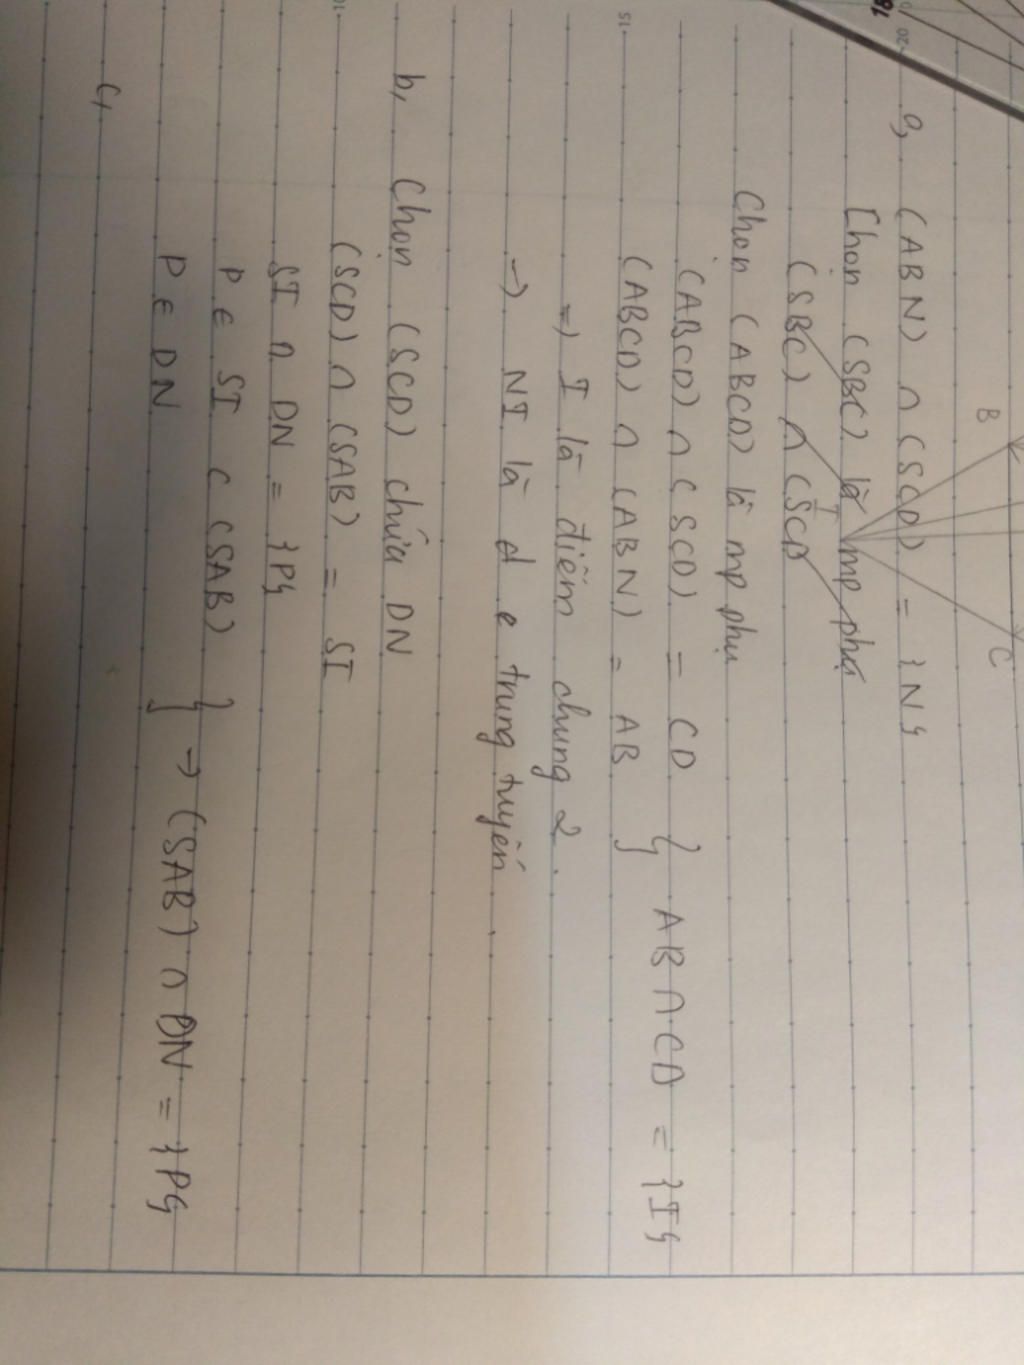 a, (ABN) ∩ (SCD) = {N}
Chọn (SBC) là mp phụ
(SBC) ∩ (SCD
Chọn (ABCD) là mp phụ
(ABCD) ∩ (SCD) = CD } AB ∩ CD = {I}
(ABCD) ∩ (ABN) = AB
=) I là điểm chung 2.
-) NI là d e trung tuyến.
b, Chọn (SCD) chứa DN
(SCD) ∩ (SAB) = SI
SI ∩ DN = {P}
P ∈ SI ⊂ (SAB) } -) (SAB) ∩ DN = {P}
P ∈ DN
c,
B
I
C
20
15
10